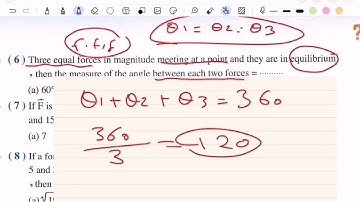 F.F.F
θ1 = θ2 = θ3
( 6 ) Three equal forces in magnitude meeting at a point and they are in equilibrium
, then the measure of the angle between each two forces = ··········
(a) 60°
( 7 ) If F is
and 15
(a) 7
( 8 ) If a fo
5 and
, then
θ1 + θ2 + θ3 = 360
360
3
= 120